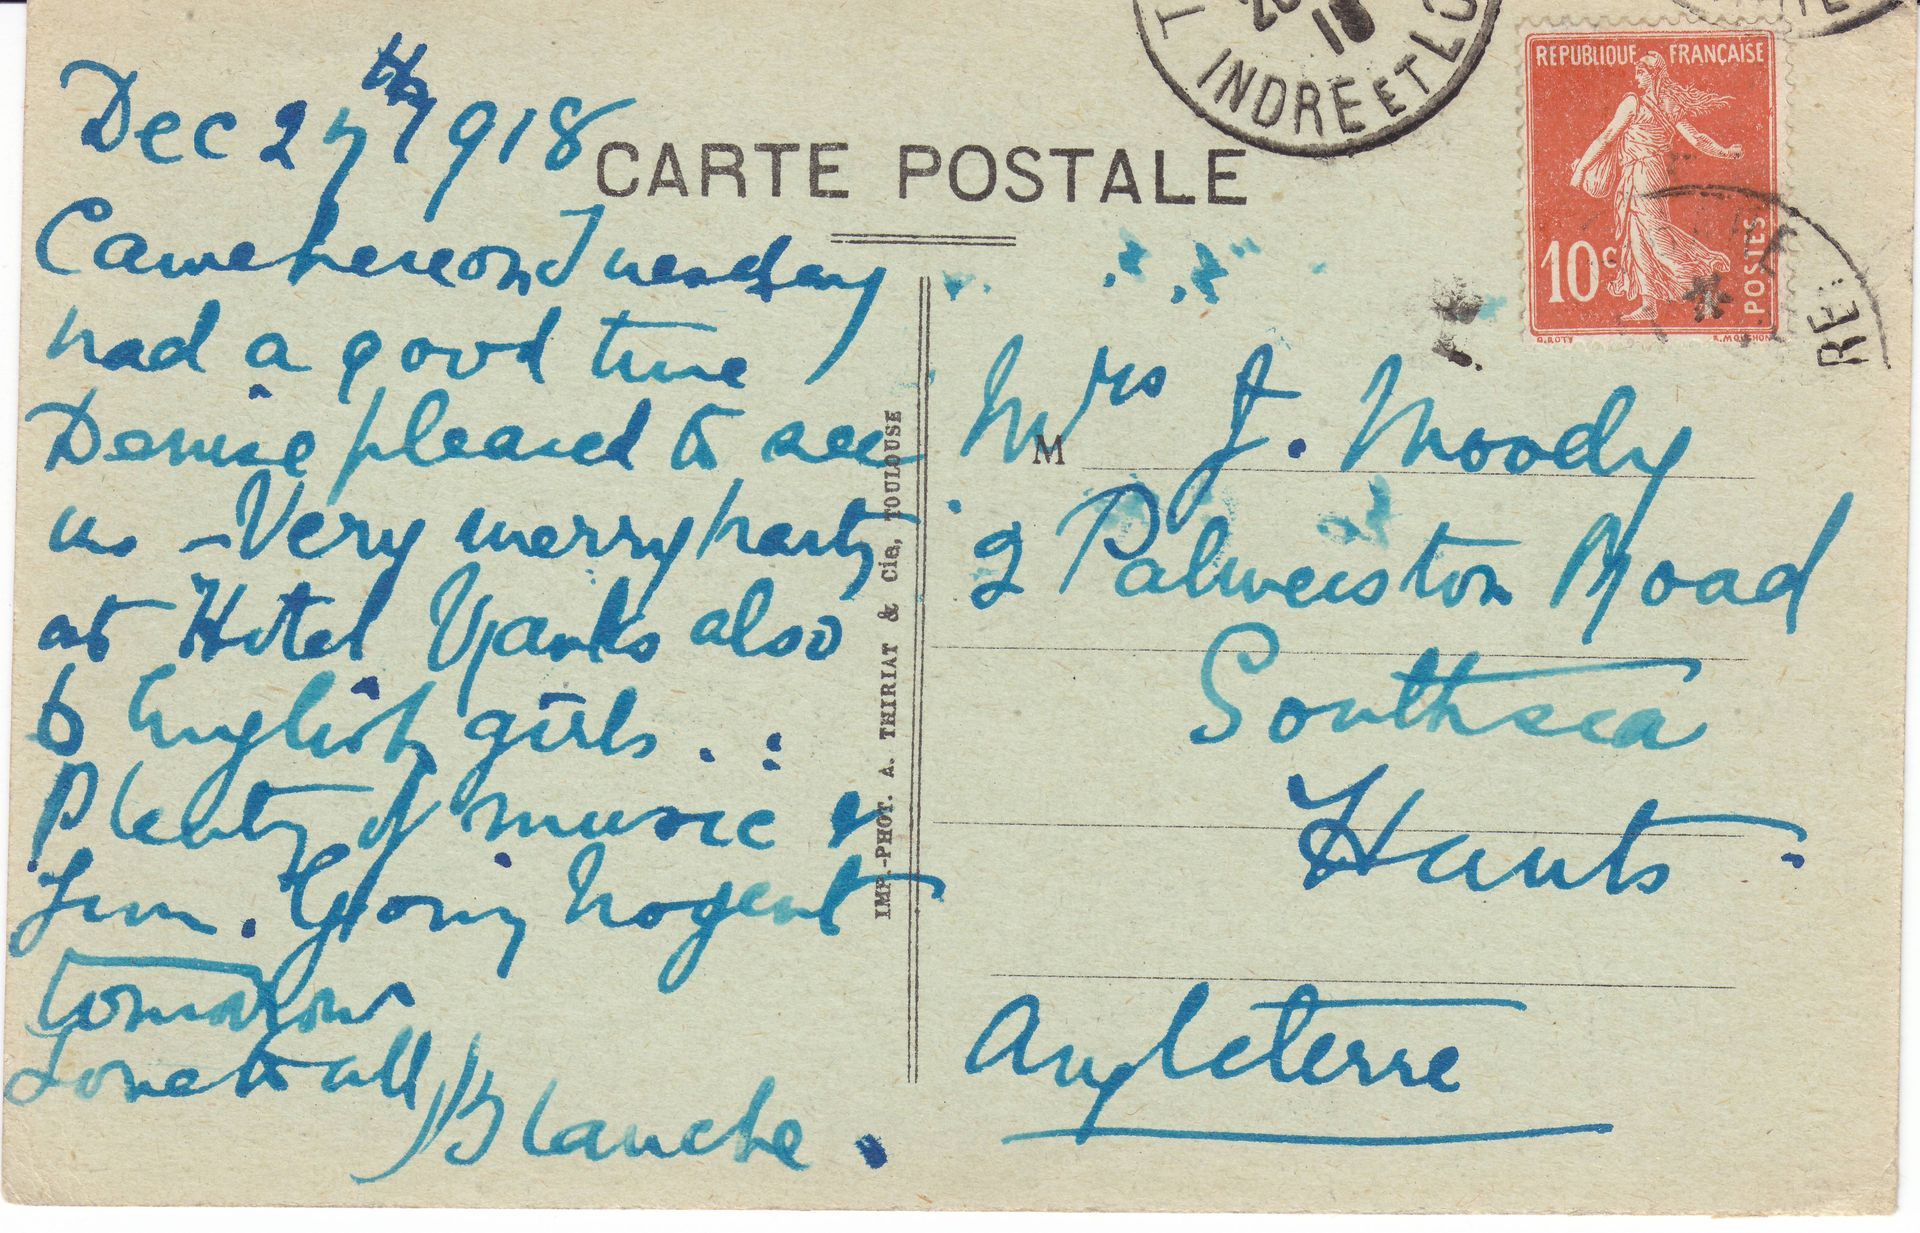 Dec 27th 1918
Came here on Tuesday
had a good time
Denise pleased to see
us - Very merry party
at Hotel Yanks also
6 English girls . :
Plenty of music &
fun. Going Nogent
tomorrow
Love to all
Blanche.
CARTE POSTALE
IMP.-PHOT. A. THIRIAT & Cie, TOULOUSE
INDRE ET LO
18
REPUBLIQUE FRANÇAISE
10c
POSTES
RE
M
Mrs J. Moody
2 Palmerston Road
Southsea
Hants.
Angleterre